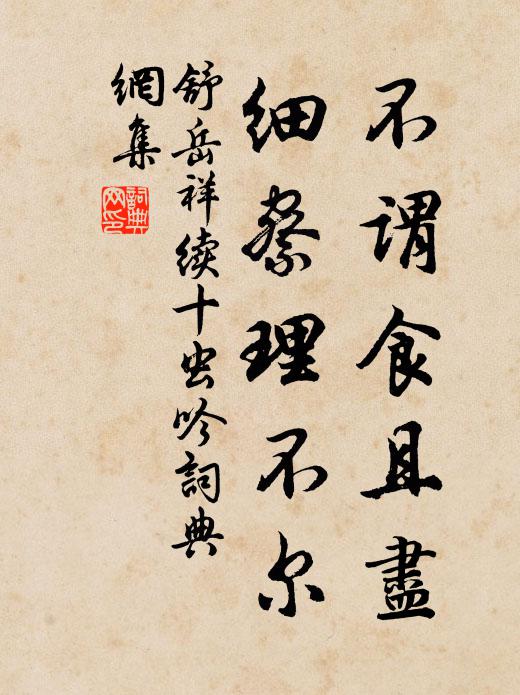 不谓食且盡
细察理不尔
舒岳祥续十虫吟詞典
網集
詞典網印